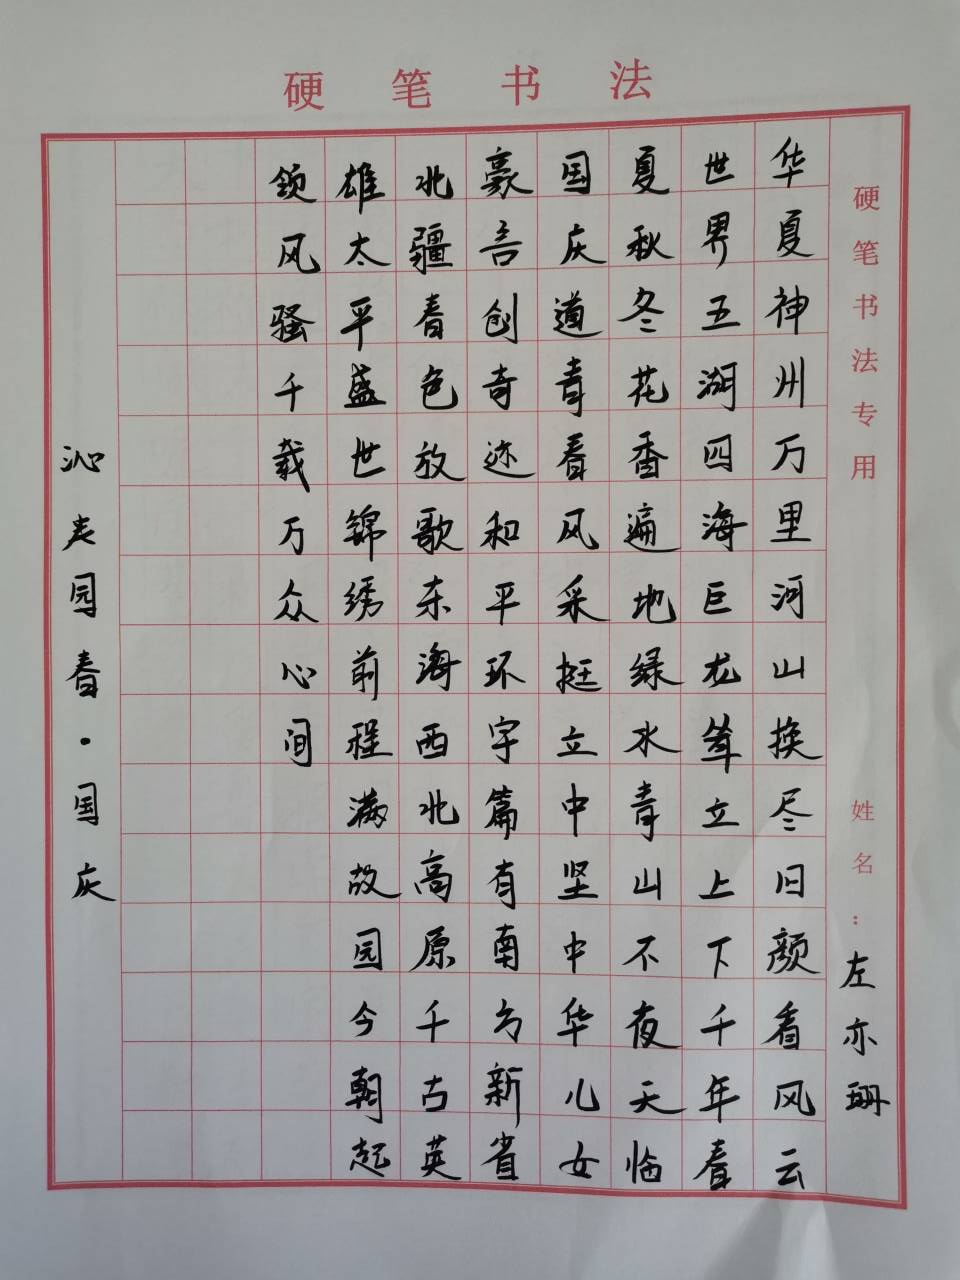 硬笔书法
硬笔书法专用
姓名：左亦珊
华夏神州万里河山换尽旧颜看风云
世界五湖四海巨龙耸立上下千年春
夏秋冬花香遍地绿水青山不夜天临
国庆道青春风采挺立中坚中华儿女
豪言创奇迹和平环宇篇有南方新省
北疆春色放歌东海西北高原千古英
雄太平盛世锦绣前程满故园今朝起
领风骚千载万众心间
沁园春·国庆